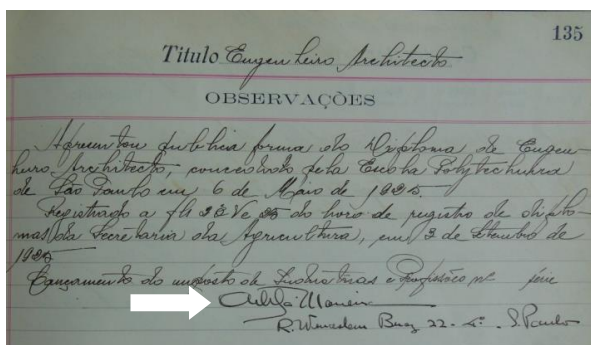 135
Titulo Engenheiro Architecto
OBSERVAÇÕES
Apresentou publica forma do Diploma de Engen-
heiro Architecto, concedido pela Escola Polytechnica
de São Paulo em 6 de Maio de 1925.
Registrado a fl do livro de registro de diplo-
mas da Secretaria da Agricultura, em 3 de Setembro de
1925
Lançamento do imposto de Industrias e Profissões nº série
R. Wenceslau Braz 22 - S. Paulo